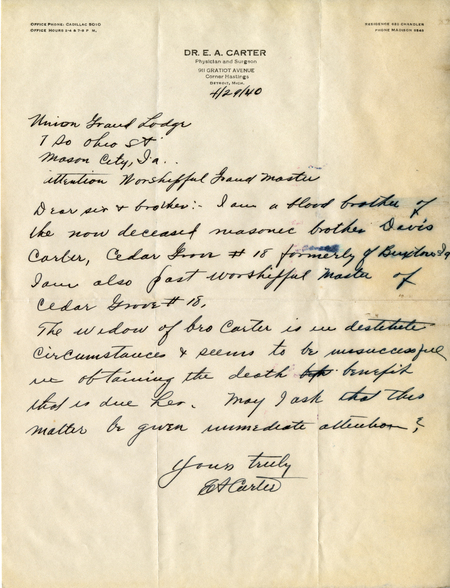 OFFICE PHONE: CADILLAC 5010
OFFICE HOURS 2-4 & 7-8 P. M.
RESIDENCE 1351 CHANDLER
PHONE MADISON
DR. E. A. CARTER
Physician and Surgeon
911 GRATIOT AVENUE
Corner Hastings
DETROIT, MICH.
4/29/40
Union Grand Lodge
7 So Ohio St
Mason City, Ia..
attention Worshipful Grand Master
Dear sir & brother:- I am a blood brother of
the now deceased masonic brother Davis
Carter, Cedar Grove # 18 formerly of Buxton Ia
I am also past worshipful master of
Cedar Grove # 18.
The widow of bro Carter is in destitute
circumstances & seems to be unsuccessful
in obtaining the death benefit
that is due her. May I ask that this
matter be given immediate attention?
Yours truly
EA Carter